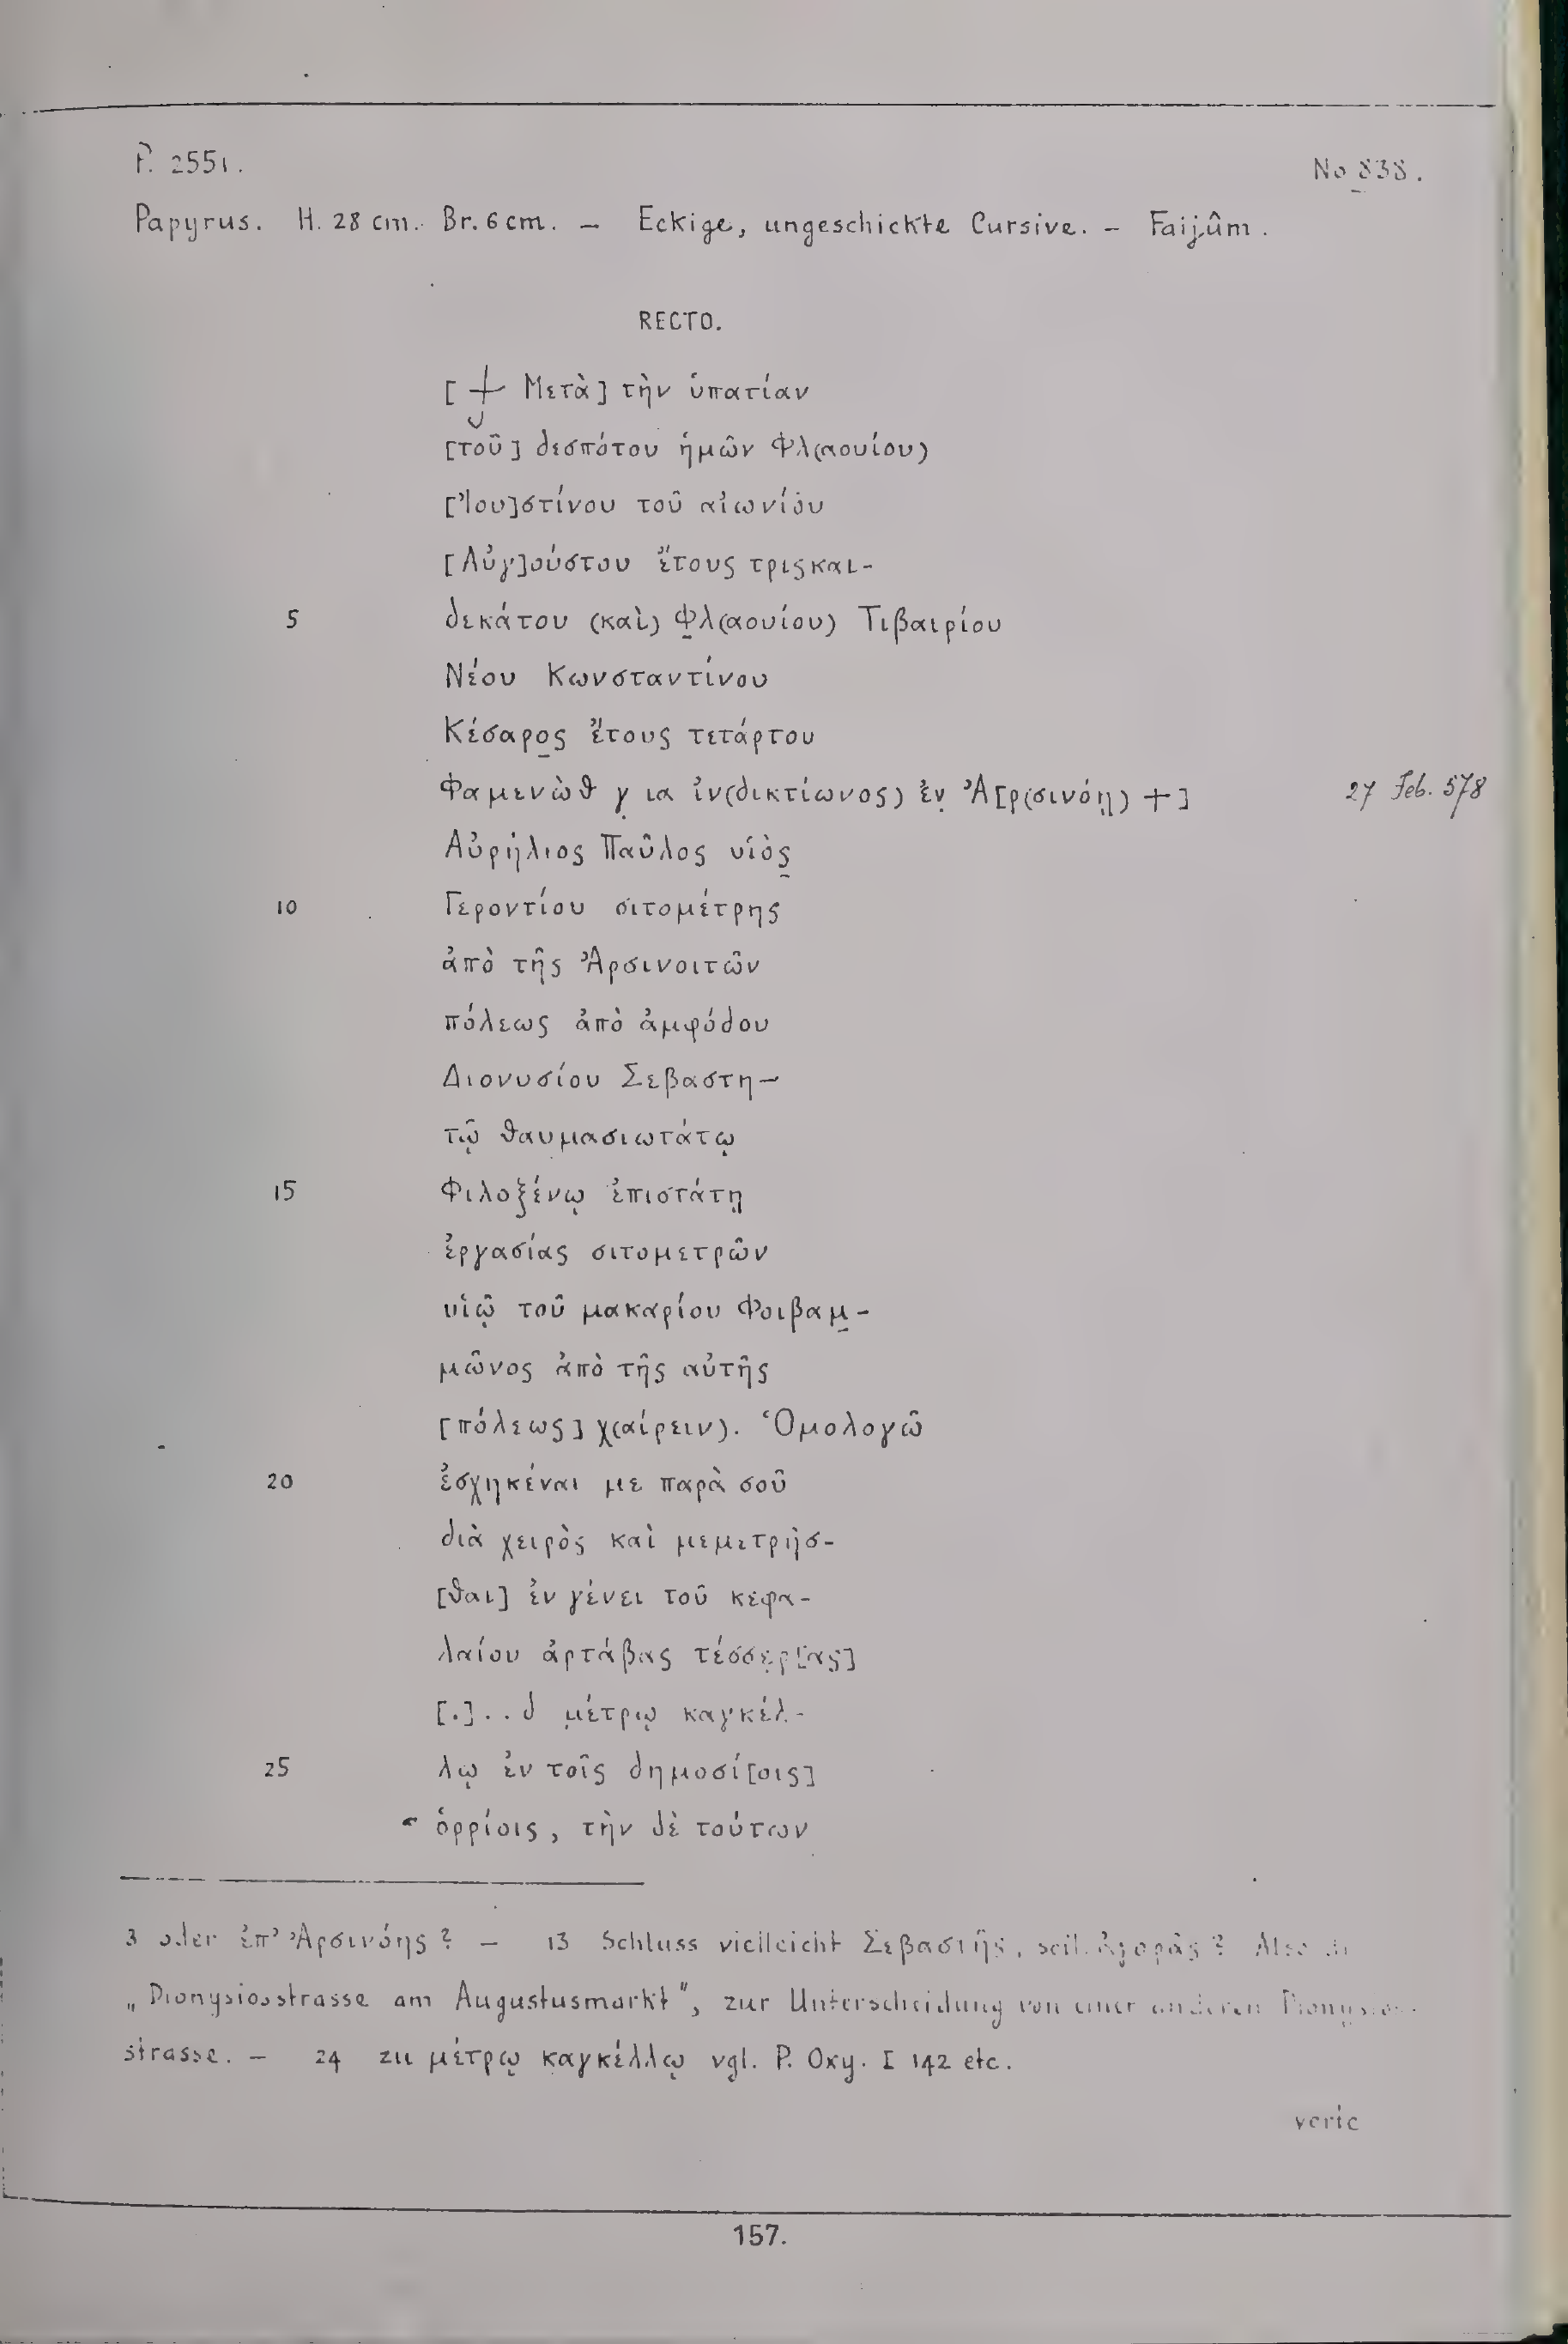 P. 2551. No 838.
Papyrus. H. 28 cm. Br. 6 cm. – Eckige, ungeschickte Cursive. – Faijûm.
RECTO.
[ ⳨ Μετὰ] τὴν ὑπατίαν
[τοῦ] δεσπότου ἡμῶν Φλ(αουίου)
[Ἰου]στίνου τοῦ αἰωνίου
[Αὐγ]ούστου ἔτους τριςκαι-
5 δεκάτου (καὶ) Φ̲λ(αουίου) Τιβαιρίου
Νέου Κωνσταντίνου
Κέσαρο̲ς ἔτους τετάρτου
Φαμενὼθ γ̣ ια ἰν(δικτίωνος) ἐν̣ Ἀ[ρ(σινόῃ) +] 27 Feb. 578
Αὐρήλιος Παῦλος υἱὸς̲
10 Γεροντίου σιτομέτρης
ἀπὸ τῆς Ἀρσινοιτῶν
πόλεως ἀπὸ ἀμφόδου
Διονυσίου Σεβαστη–
τῷ θαυμασιωτάτῳ
15 Φιλοξένῳ ἐπιστάτῃ
ἐργασίας σιτομετρῶν
υἱῷ τοῦ μακαρίου Φοιβαμ̲-
μῶνος ἀπὸ τῆς αὐτῆς
[πόλεως] χ(αίρειν). Ὁμολογῶ
20 ἐσχηκέναι με παρὰ σοῦ
διὰ χειρὸς καὶ μεμετρῆσ-
[θαι] ἐν γένει τοῦ κεφα-
λαίου ἀρτάβας τέσσε̣ρ̣[ας]
[.]..δ μέτρῳ καγκέλ-
25 λῳ ἐν τοῖς δημοσί[οις]
ὁρρίοις, τὴν δὲ τούτων
3 oder ἐπ’ Ἀρσινόης? – 13 Schluss vielleicht Σεβαστῆς, scil. ἀγορᾶς? Also
„Dionysiosstrasse am Augustusmarkt", zur Unterscheidung von einer anderen Dionysios-
strasse. – 24 zu μέτρῳ καγκέλλῳ vgl. P. Oxy. I 142 etc.
verte
157.